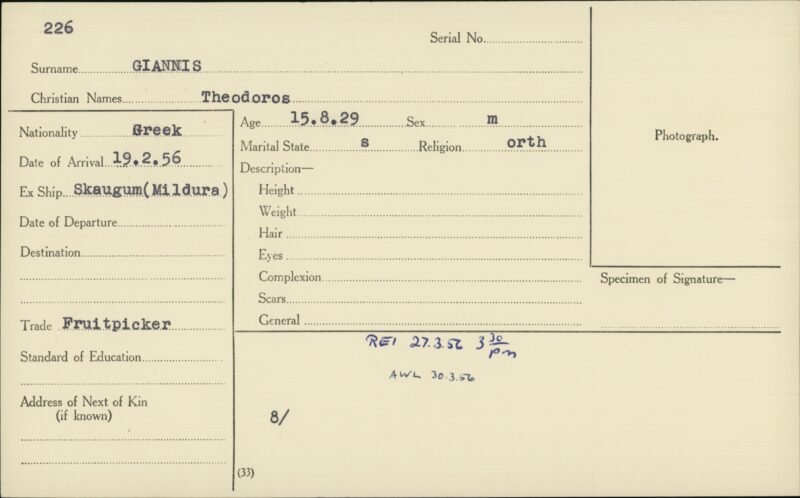 226
Serial No.
Surname GIANNIS
Christian Names Theodoros
Nationality Greek
Date of Arrival 19.2.56
Ex Ship Skaugum(Mildura)
Date of Departure
Destination
Trade Fruitpicker
Standard of Education
Address of Next of Kin
(if known)
Age 15.8.29 Sex m
Marital State s Religion orth
Description—
Height
Weight
Hair
Eyes
Complexion
Scars
General
Photograph.
Specimen of Signature—
REI 27.3.56 3 30/pm
AWL 30.3.56
8/
(33)